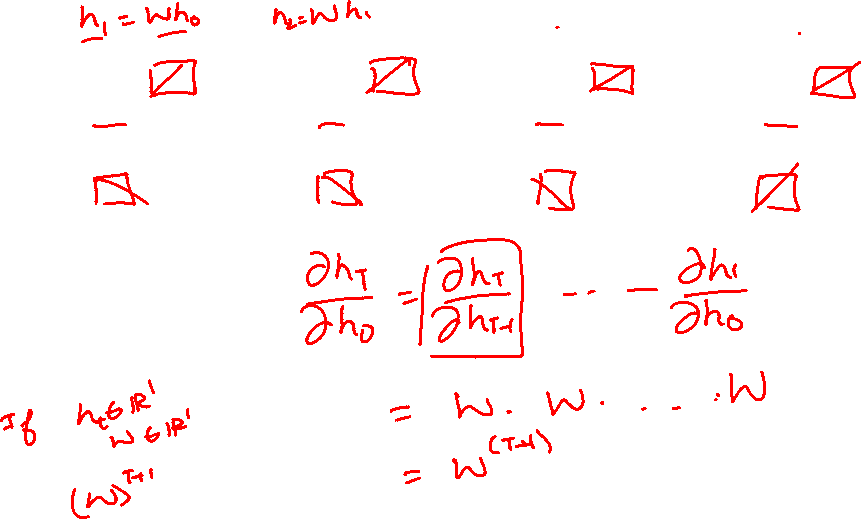 h₁ = Wh₀ h₂ = Wh₁
∂h_T/∂h₀ = ∂h_T/∂h_{T-1} ·· - ∂h₁/∂h₀
If h_t ∈ ℝ¹ = W · W · . . . · W
W ∈ ℝ¹
(W)^{T+1} = W^{(T+1)}